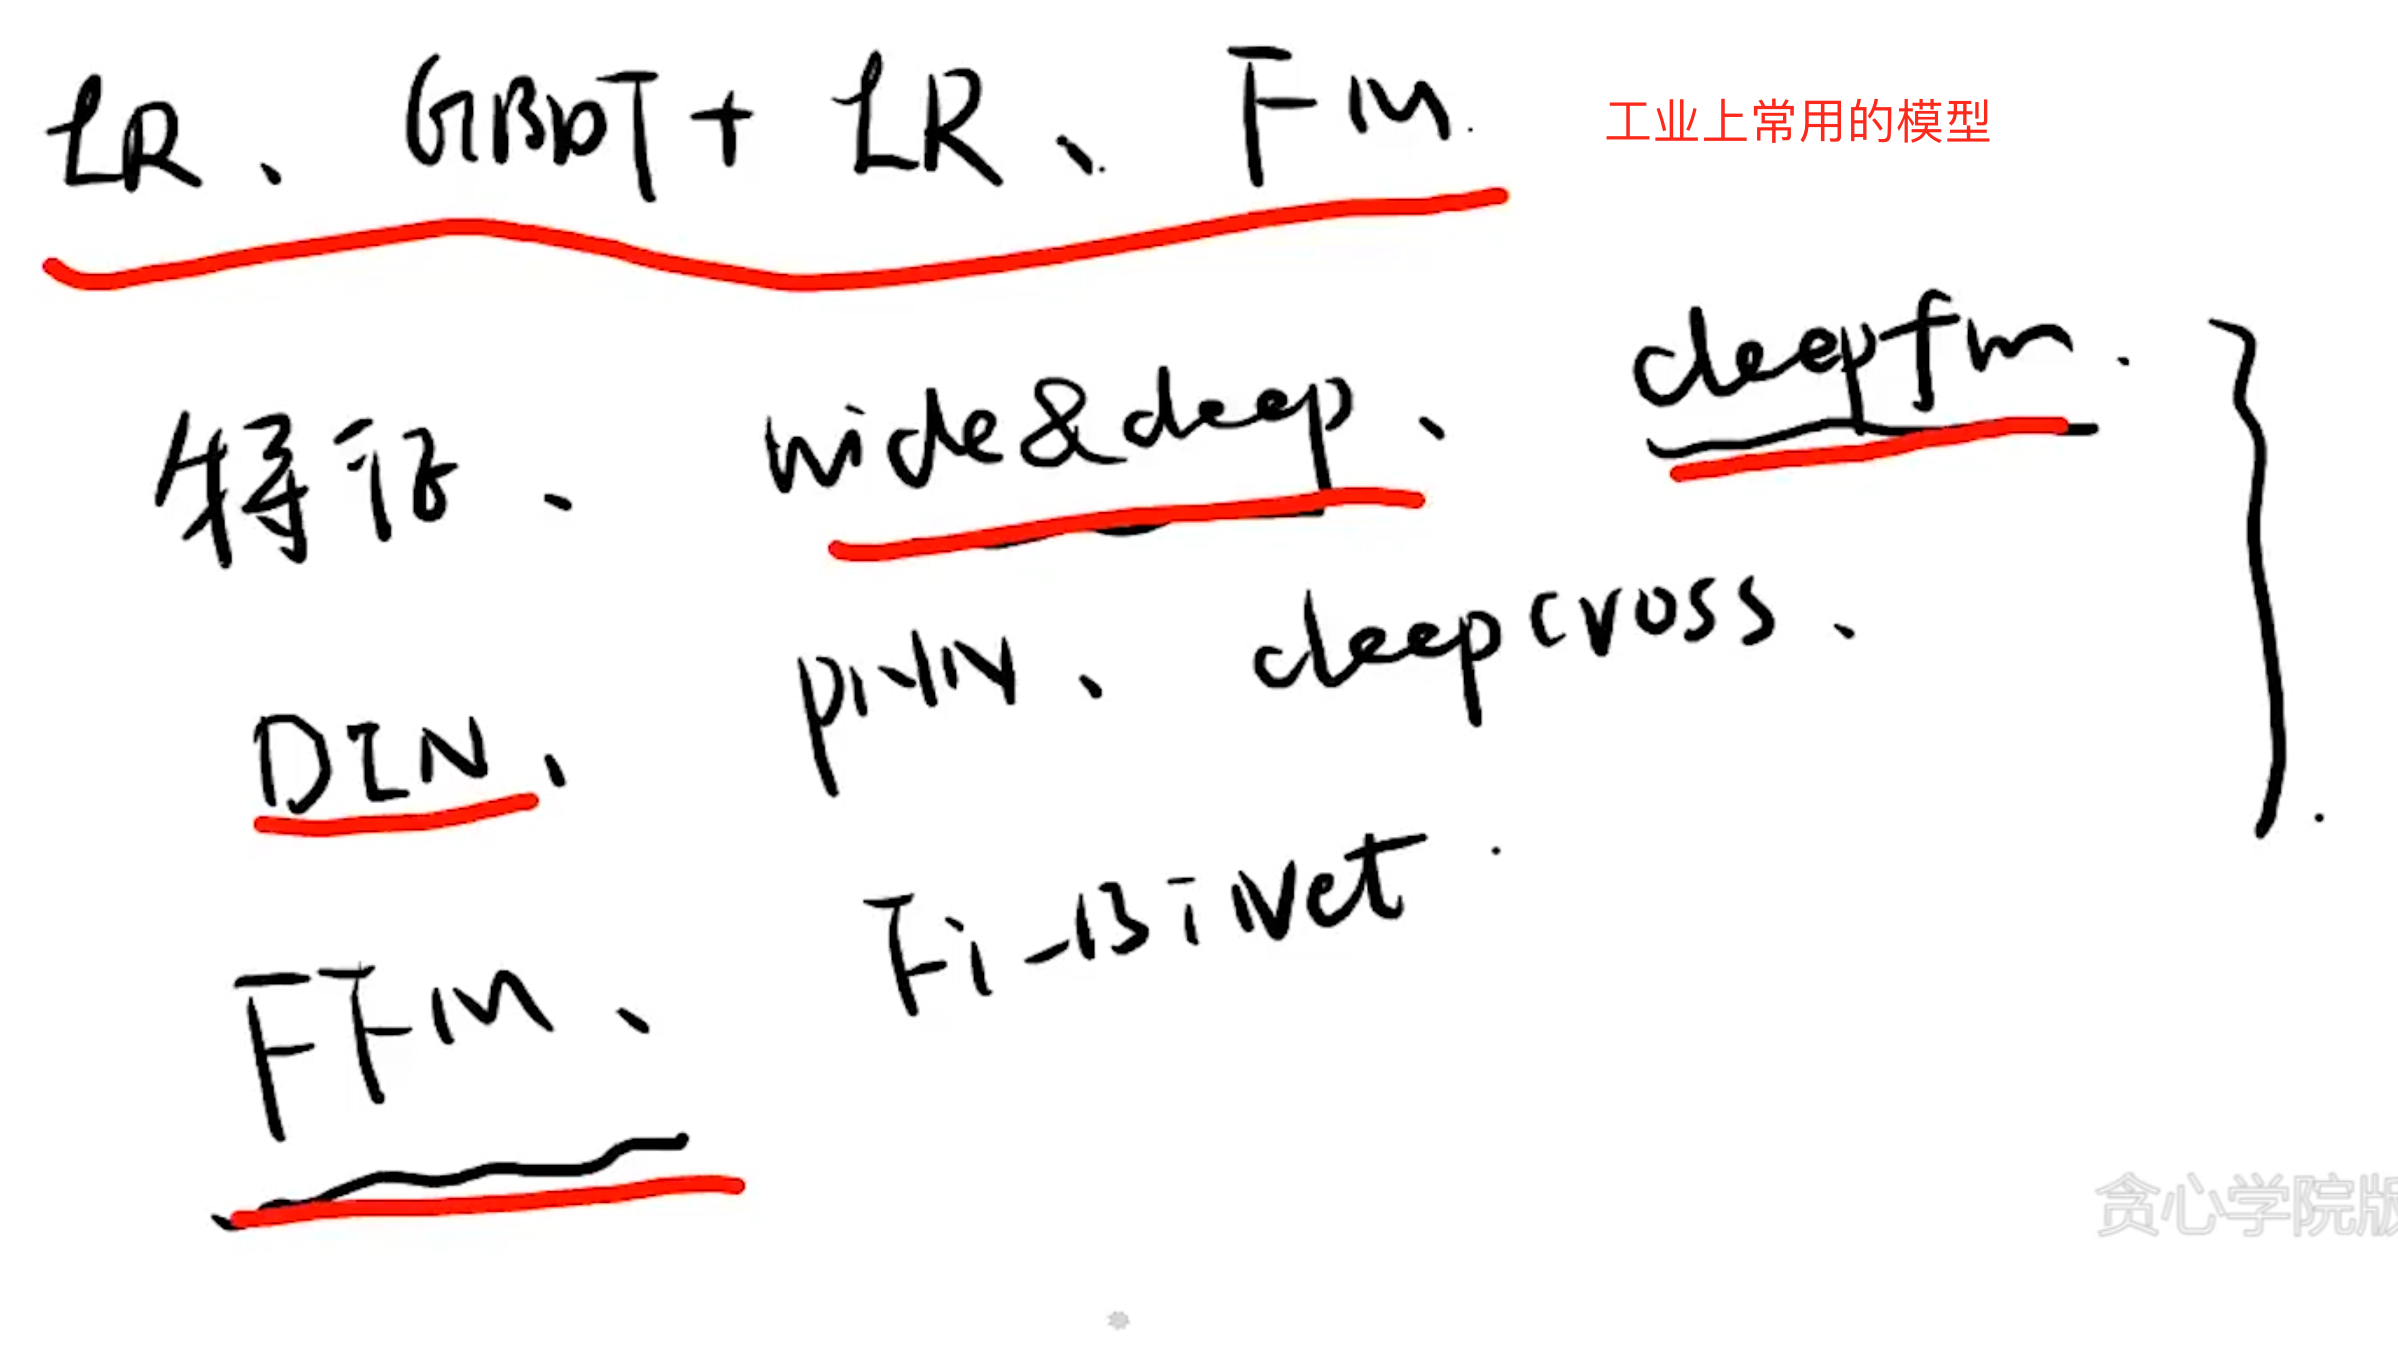 LR、GBDT+LR、FM.
工业上常用的模型
特征、wide&deep、deepfm.
DIN、PNN、deepcross、
FFM、Fi-BiNet.
贪心学院版